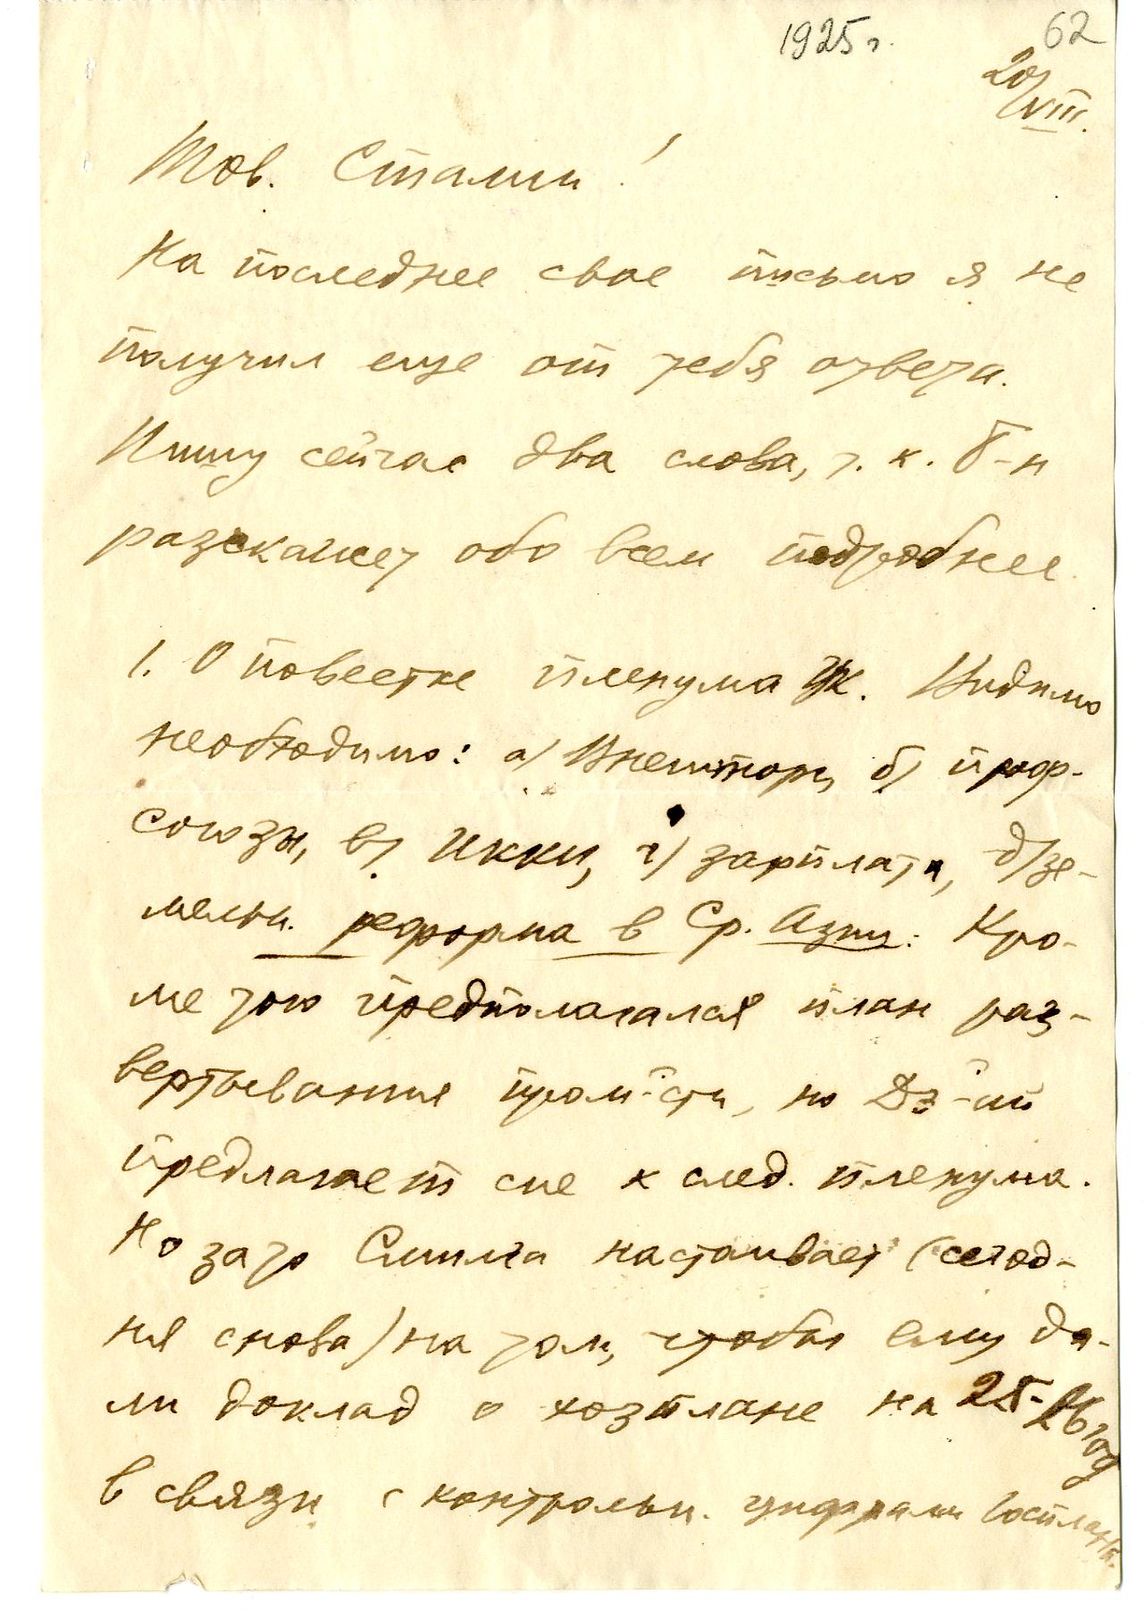 1925 г.
62
20/VIII.
Тов. Сталин!
На последнее свое письмо я не
получил еще от тебя ответа.
Пишу сейчас два слова, т. к. Б-н
разскажет обо всем подробнее
1. О повестке пленума ЦК. Видимо
необходимо: а/ Внешторг, б/ проф-
союзы, в/ ИККИ, г/ зарплата, д/ зе-
мельн. реформа в Ср. Азии. Кро-
ме того предполагался план раз-
вертывания пром-сти, но Дз-ий
предлагает сие к след. пленума.
Но зато Смилга настаивает (сегод-
ня снова) на том, чтобы ему да-
ли доклад о хозплане на 25-26 год
в связи с контрольн. цифрами Госплана.